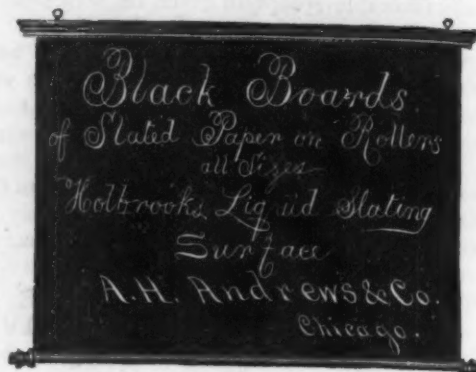 Black Boards
of Slated Paper on Rollers
all Sizes
Holbrooks Liquid Slating
Surface
A. H. Andrews & Co.
Chicago.